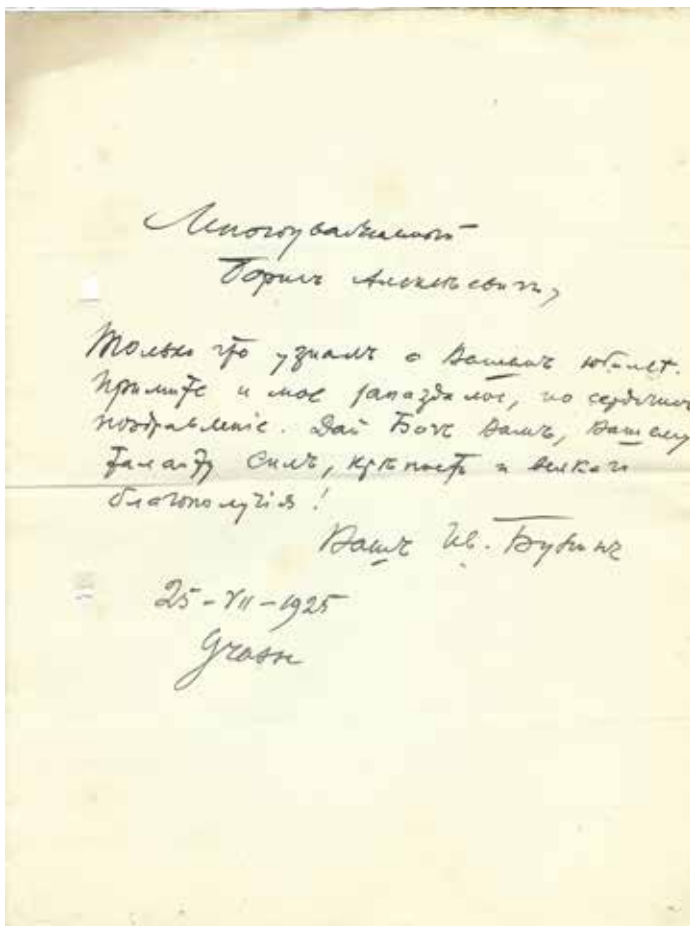 Многоуважаемый
Борисъ Алексѣевичъ,
Только что узналъ о Вашемъ юбилеѣ.
Примите и мое запоздалое, но сердечное
поздравленіе. Дай Богъ Вамъ, Вашему
таланту силъ, крѣпость и всякаго
благополучія!
Вашъ Ив. Бунинъ
25-VII-1925
Grasse